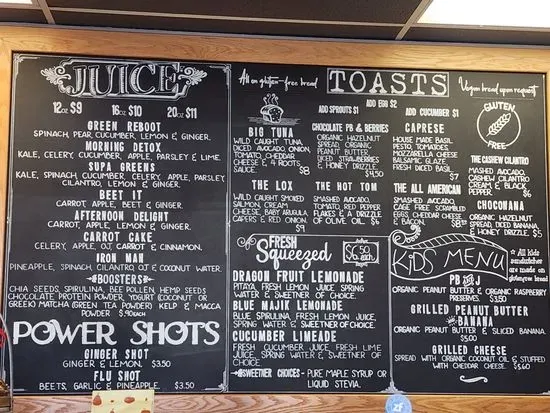 JUICE
12oz $9 16oz $10 20oz $11
GREEN REBOOT
SPINACH, PEAR, CUCUMBER, LEMON & GINGER.
MORNING DETOX
KALE, CELERY, CUCUMBER, APPLE, PARSLEY & LIME.
SUPA GREENS
KALE, SPINACH, CUCUMBER, CELERY, APPLE, PARSLEY,
CILANTRO, LEMON & GINGER.
BEET IT
CARROT, APPLE, BEET & GINGER.
AFTERNOON DELIGHT
CARROT, APPLE, LEMON & GINGER.
CARROT CAKE
CELERY, APPLE, OJ, CARROT & CINNAMON.
IRON MAN
PINEAPPLE, SPINACH, CILANTRO, OJ & COCONUT WATER.
BOOSTERS
CHIA SEEDS, SPIRULINA, BEE POLLEN, HEMP SEEDS
CHOCOLATE PROTEIN POWDER, YOGURT (COCONUT OR
GREEK) MATCHA (GREEN TEA POWDER) KELP & MACCA
POWDER. $.90EACH
POWER SHOTS
GINGER SHOT
GINGER & LEMON. $3.50
FLU SHOT
BEETS, GARLIC & PINEAPPLE. $3.50
All on gluten-free bread
TOASTS
Vegan bread upon request
ADD SPROUTS $1 ADD EGG $2 ADD CUCUMBER $1
BIG TUNA
WILD CAUGHT TUNA,
DICED AVOCADO, ONION,
TOMATO, CHEDDAR
CHEESE & 4 ROOTS
SAUCE. $8
THE LOX
WILD CAUGHT SMOKED
SALMON, CREAM
CHEESE, BABY ARUGULA,
CAPERS & RED ONION.
$9
CHOCOLATE PB & BERRIES
ORGANIC HAZELNUT
SPREAD, ORGANIC
PEANUT BUTTER,
DICED STRAWBERRIES
& HONEY DRIZZLE.
$4.50
THE HOT TOM
SMASHED AVOCADO,
TOMATO, RED PEPPER
FLAKES & A DRIZZLE
OF OLIVE OIL. $6
CAPRESE
HOUSE MADE BASIL
PESTO, TOMATOES,
MOZZARELLA CHEESE
BALSAMIC GLAZE,
FRESH DICED BASIL.
$7
THE ALL AMERICAN
SMASHED AVOCADO,
CAGE FREE SCRAMBLED
EGGS, CHEDDAR CHEESE
& BACON.
GLUTEN
FREE
THE CASHEW CILANTRO
SMASHED AVOCADO,
CASHEW CILANTRO
CREAM & BLACK
PEPPER. $6
CHOCONANA
ORGANIC HAZELNUT
SPREAD, DICED BANANA,
& HONEY DRIZZLE. $5
FRESH
Squeezed
$6.50
each
DRAGON FRUIT LEMONADE
PITAYA, FRESH LEMON JUICE, SPRING
WATER & SWEETNER OF CHOICE.
BLUE MAJIK LEMONADE
BLUE SPIRULINA, FRESH LEMON JUICE,
SPRING WATER & SWEETNER OF CHOICE.
CUCUMBER LIMEADE
FRESH CUCUMBER JUICE, FRESH LIME
JUICE, SPRING WATER & SWEETNER OF
CHOICE
SWEETNER CHOICES - PURE MAPLE SYRUP OR
LIQUID STEVIA.
KIDS MENU
All kids
sandwiches
are made on
gluten-free bread
PB & J
ORGANIC PEANUT BUTTER & ORGANIC RASPBERRY
PRESERVES. $3.50
GRILLED PEANUT BUTTER
& BANANA
ORGANIC PEANUT BUTTER & SLICED BANANA.
$5.00
GRILLED CHEESE
SPREAD WITH ORGANIC COCONUT OIL & STUFFED
WITH CHEDDAR CHEESE. $6.00
ZF